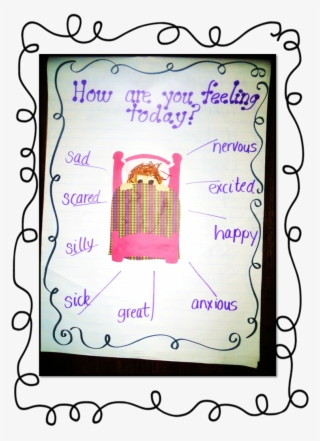 How are you feeling
today?
nervous
sad
excited
scared
happy
silly
sick
great
anxious